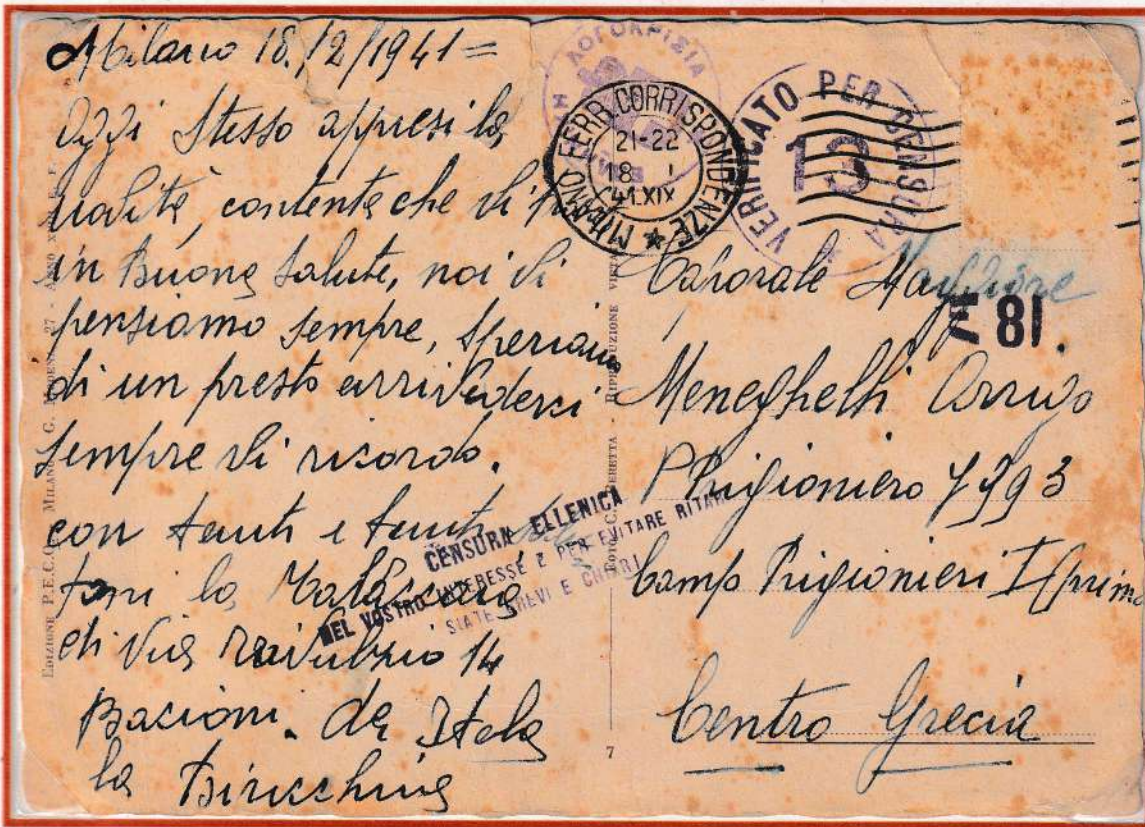 Milano 18./2/1941=
Oggi stesso appresi la
novità, contenta che
in Buona salute, noi vi
pensiamo sempre, speriamo
di un presto arrivederci
sempre vi ricordo.
con tanti e tanti
la
di Via 14
Bacioni. da Itala
la Biricchina
ΛΟΓΟΚΡΙΣΙΑ
MILANO FERR. CORRISPONDENZE
21-22
18
41.XIX
VERIFICATO PER CENSURA
13
Caporale Maggiore
E 81
Meneghelli Arrigo
Prigioniero 7993
Campo Prigionieri I (primo
Centro Grecia
CENSURA ELLENICA
NEL VOSTRO INTERESSE E PER EVITARE RITARDI
SIATE BREVI E CHIARI
7